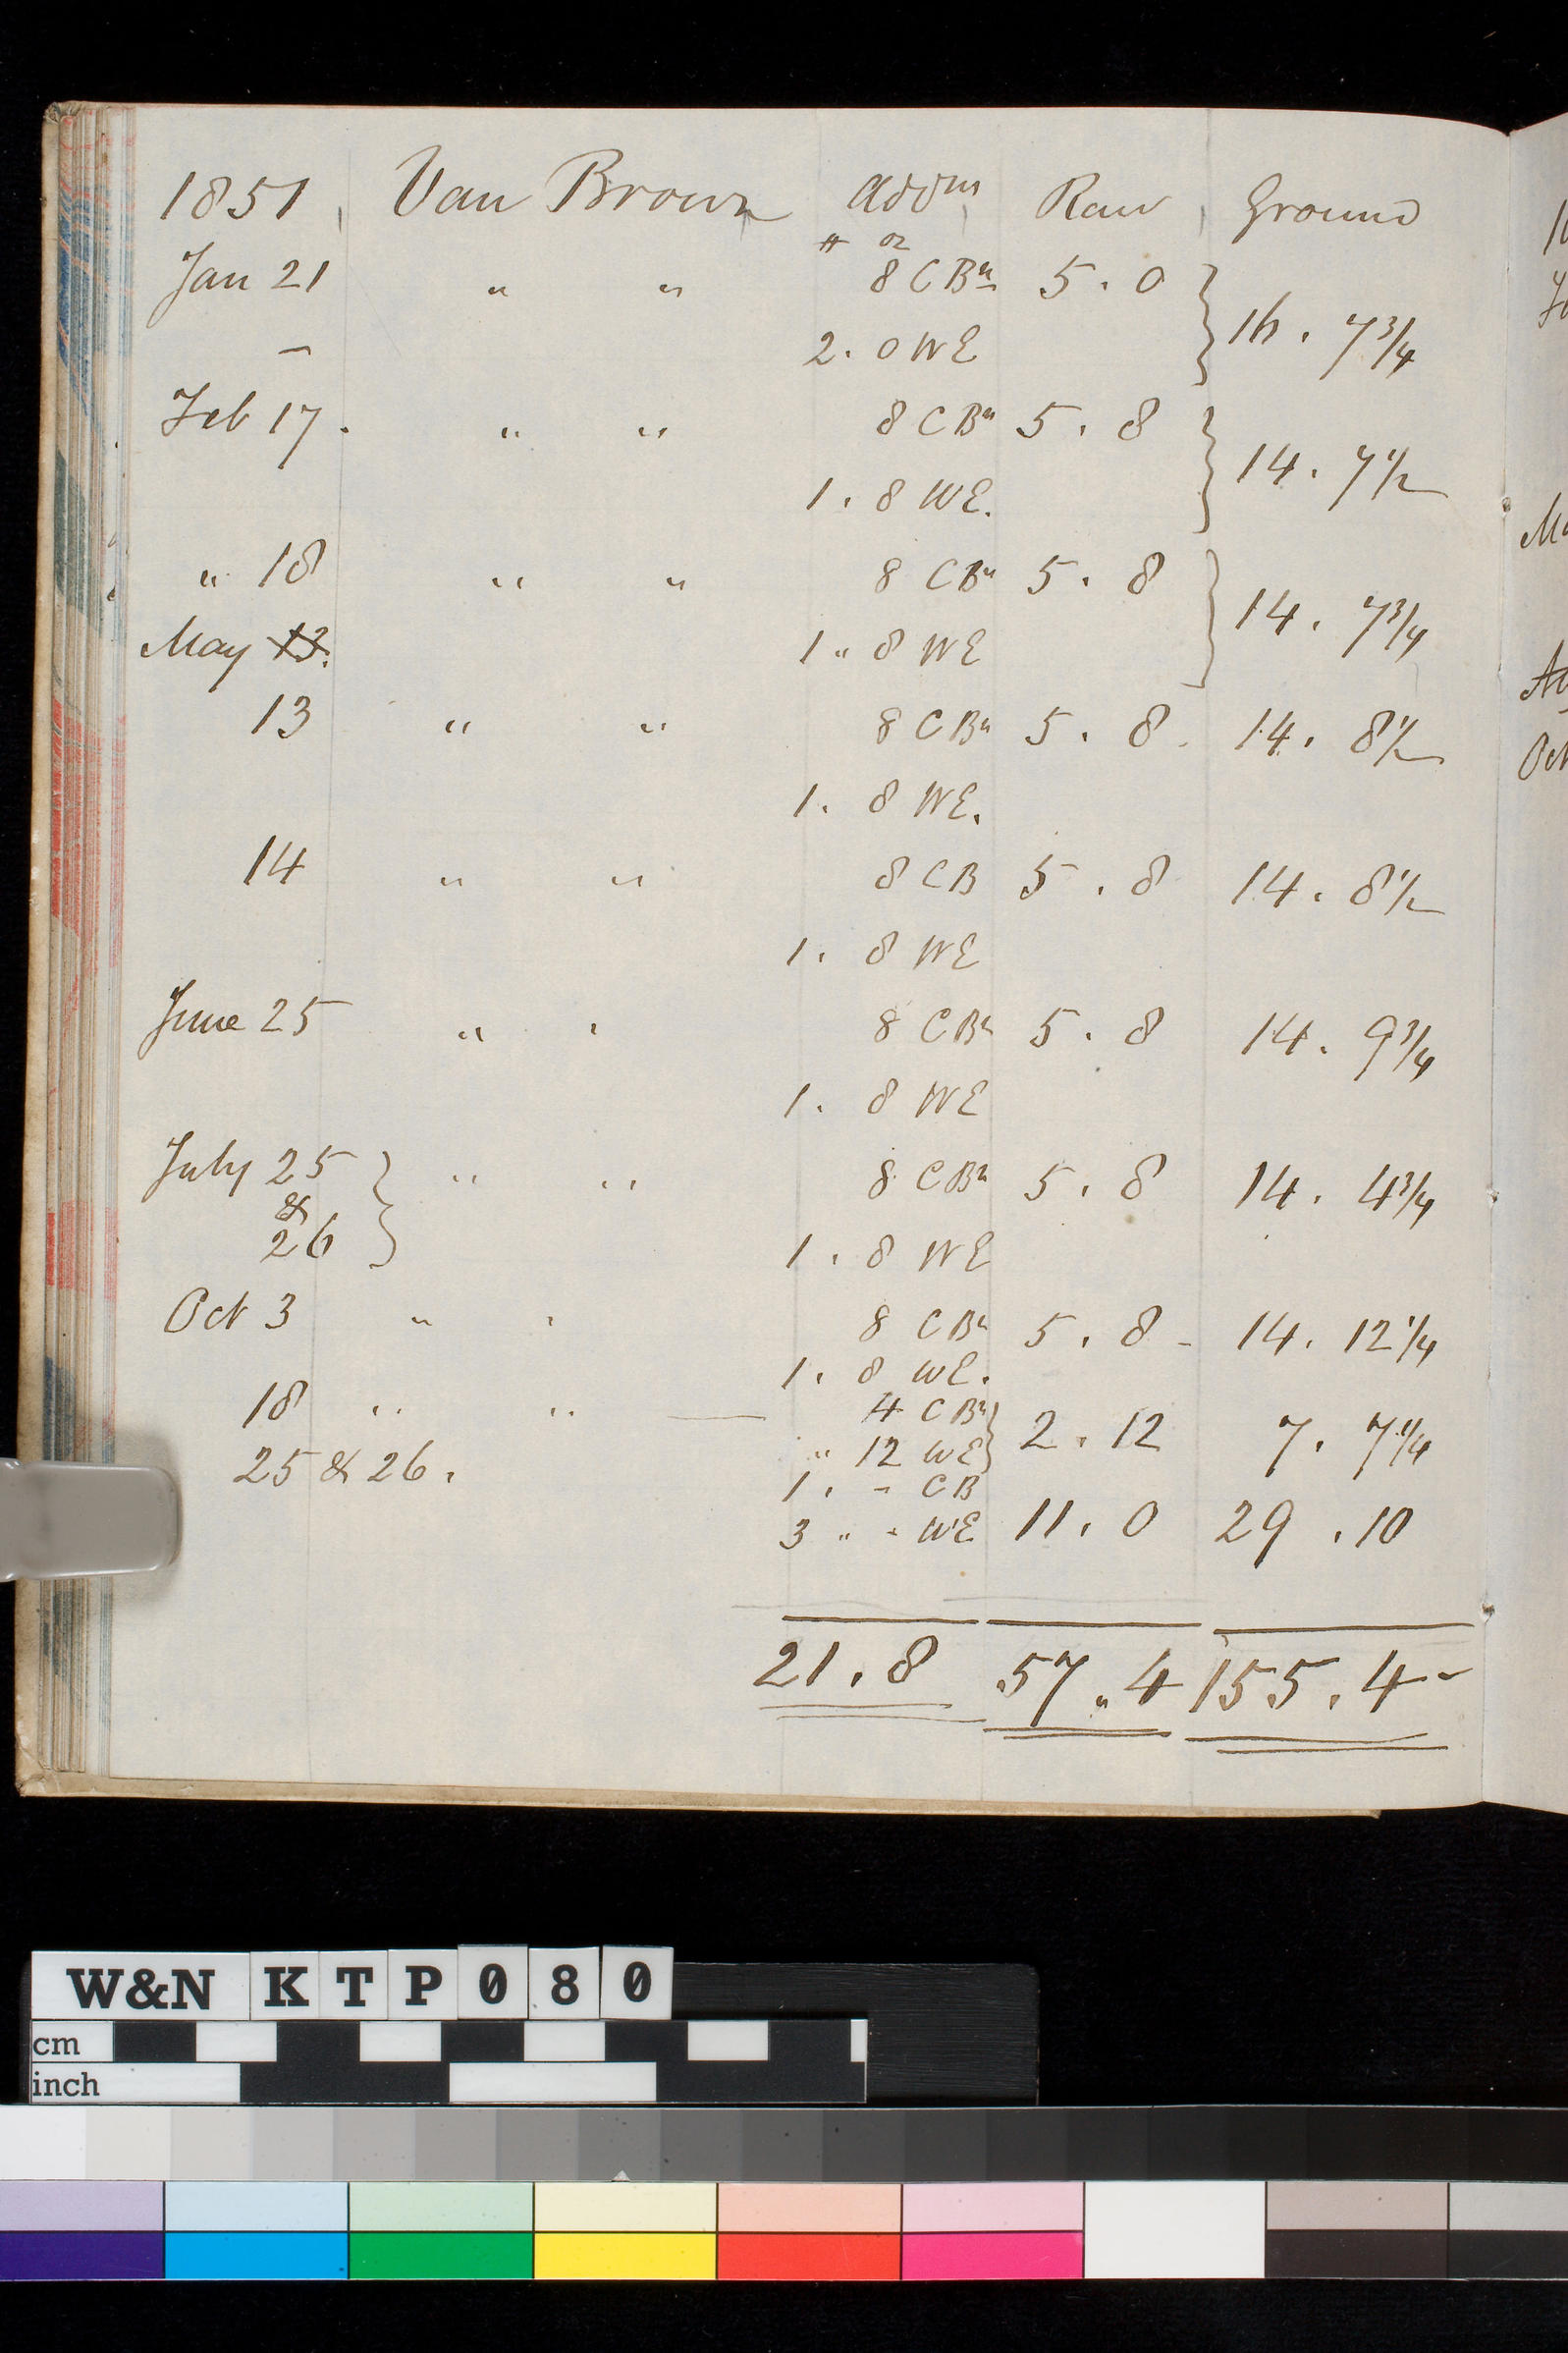 1851 Van Brown addns Raw Ground
# oz
Jan 21 " " 8 CBn 5.0 } 16. 7 3/4
2. 0 WE
Feb 17. " " 8 CBn 5. 8 } 14. 7 1/2
1. 8 WE.
" 18 " " 8 CBn 5. 8 } 14. 7 3/4
May 13. 1 " 8 WE
13 " " 8 CBn 5. 8. 14. 8 1/2
1. 8 WE.
14 " " 8 CB 5. 8 14. 8 1/2
1. 8 WE
June 25 " " 8 CBn 5. 8 14. 9 3/4
1. 8 WE
July 25 } " " 8 CBn 5. 8 14. 4 3/4
&
26 1. 8 WE
Oct 3 " " 8 CBn 5. 8 - 14. 12 1/4
1. 8 WE.
18 " " — 4 CBn } 2. 12 7. 7 1/4
" 12 WE
25 & 26. 1. - CB
3 " - WE 11. 0 29. 10
21. 8 57 " 4 155. 4 -
W&N KTP080
cm
inch